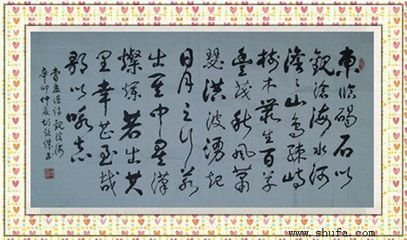 東临碣石以
觀滄海水河
澹々山島竦峙
樹木叢生百草
豐茂秋風蕭
瑟洪波湧起
日月之行若
出其中星漢
燦爛若出其
里幸甚至哉
歌以咏志
曹孟德詩觀滄海
辛卯仲夏
www.shufa.com